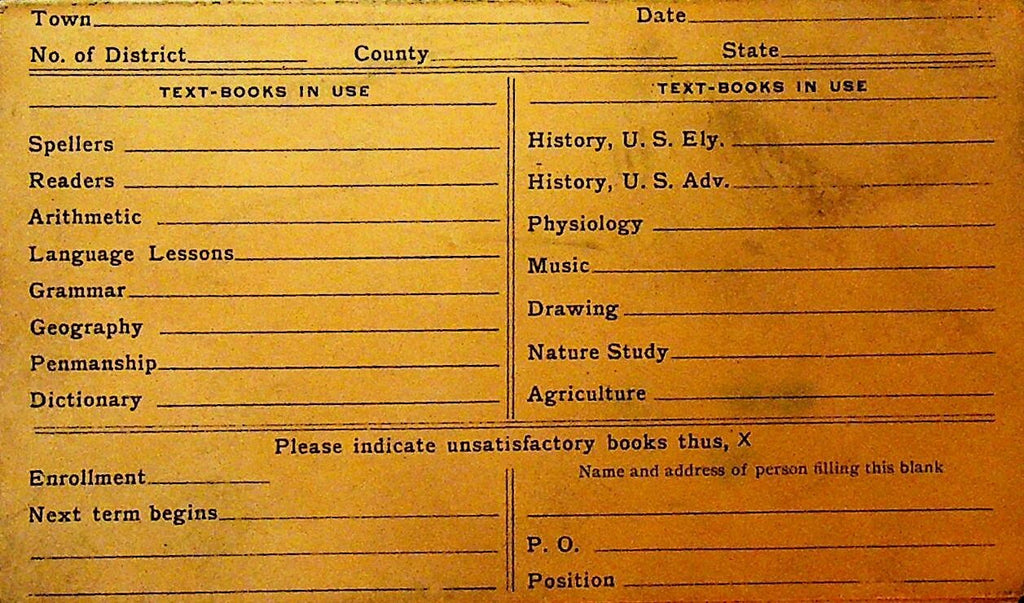 Town Date
No. of District County State
TEXT-BOOKS IN USE
Spellers
Readers
Arithmetic
Language Lessons
Grammar
Geography
Penmanship
Dictionary
TEXT-BOOKS IN USE
History, U. S. Ely.
History, U. S. Adv.
Physiology
Music
Drawing
Nature Study
Agriculture
Please indicate unsatisfactory books thus, X
Enrollment
Next term begins
Name and address of person filling this blank
P. O.
Position